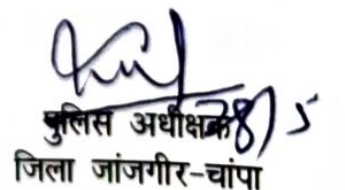 पुलिस अधीक्षक 28/5
जिला जांजगीर-चांपा